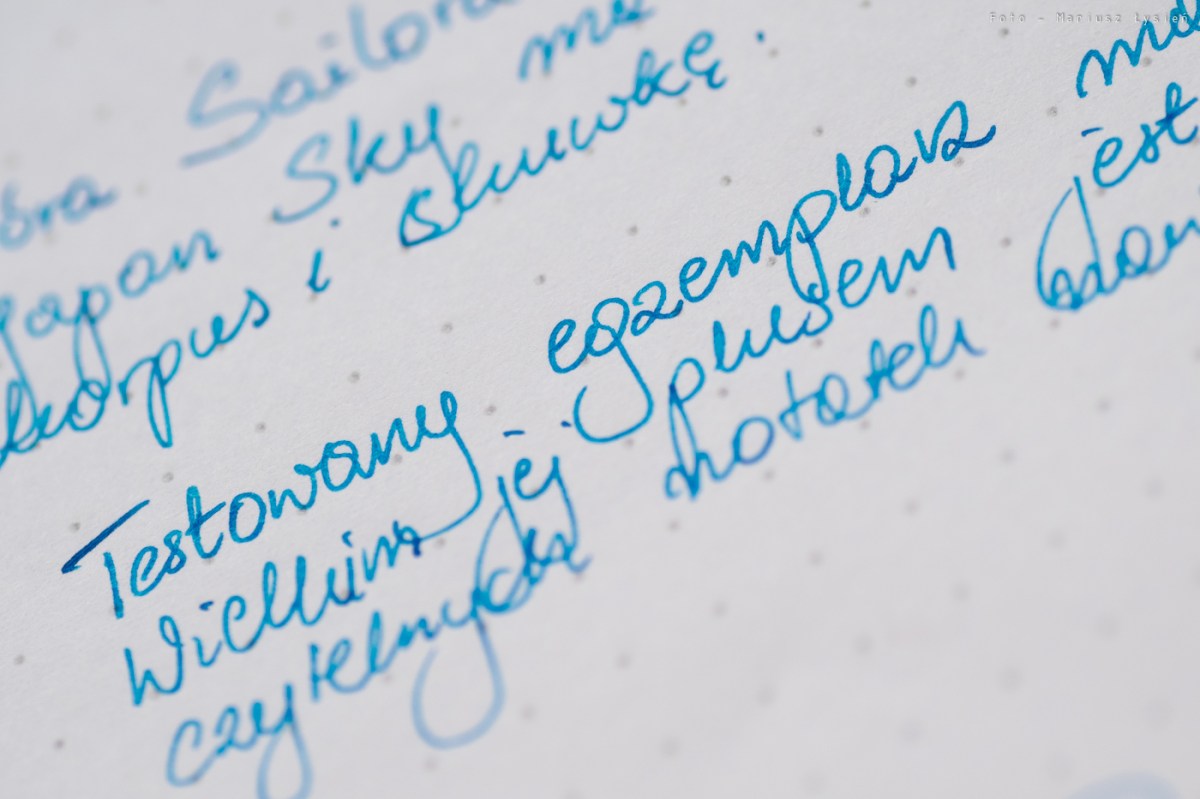 Foto - Mariusz Łysień
Sailora
Japan Sky ma
korpus i skuwkę.
Testowany egzemplarz
Wielkim jej plusem jest
czytelnych notatek